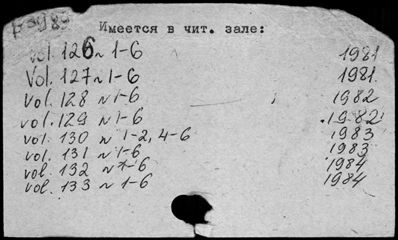 Имеется в чит. зале:
vol. 126 № 1-6 1981
Vol. 127 № 1-6 1981.
vol. 128 № 1-6 1982
vol. 129 № 1-6 1982
vol. 130 № 1-2, 4-6 1983
vol. 131 № 1-6 1983
vol. 132 № 1-6 1984
vol. 133 № 1-6 1984